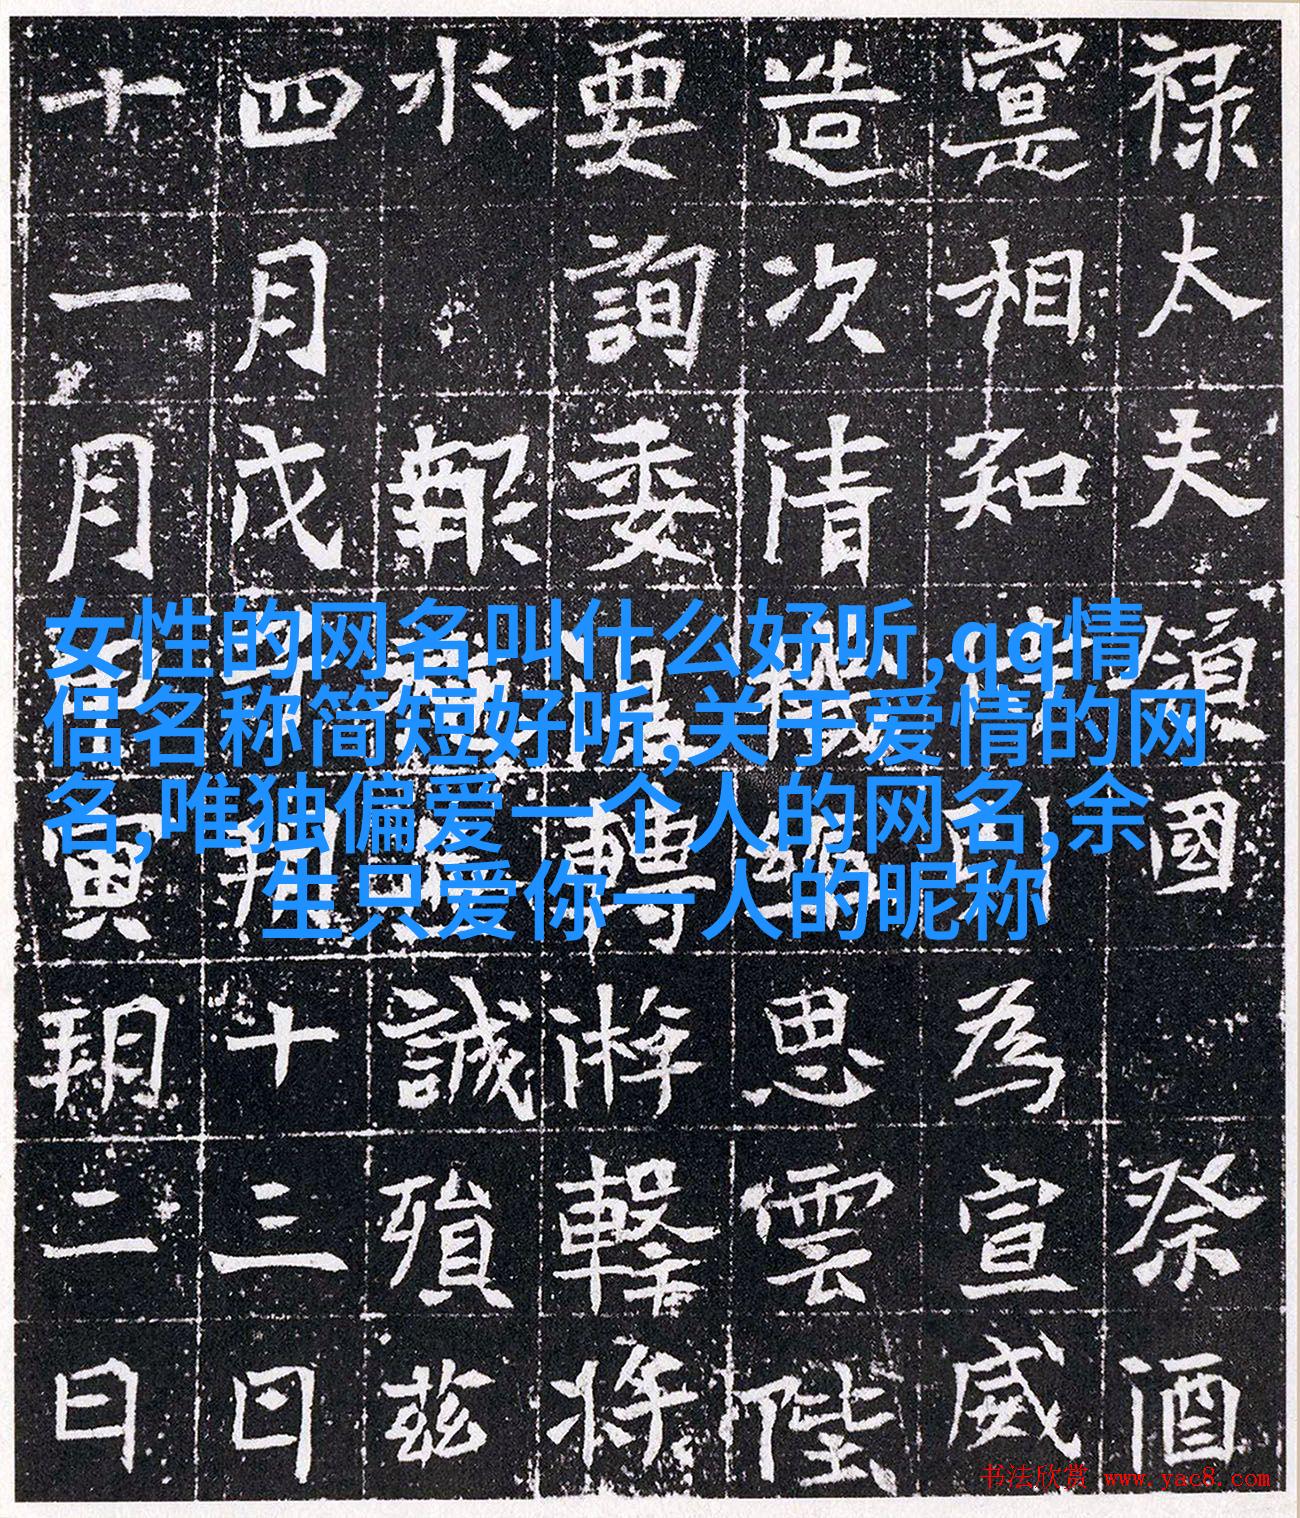 禄太夫須國祭酒
寔相知為宣威
造次清機思雲陛
要詢委轉游擊将
水報誠殞茲
四月戊子朔十三日
十一月寅朔二日
女性的网名叫什么好听,qq情
侣名称简短好听,关于爱情的网
名,唯独偏爱一个人的网名,余
生只爱你一人的昵称
书法欣赏 www.yac8.com